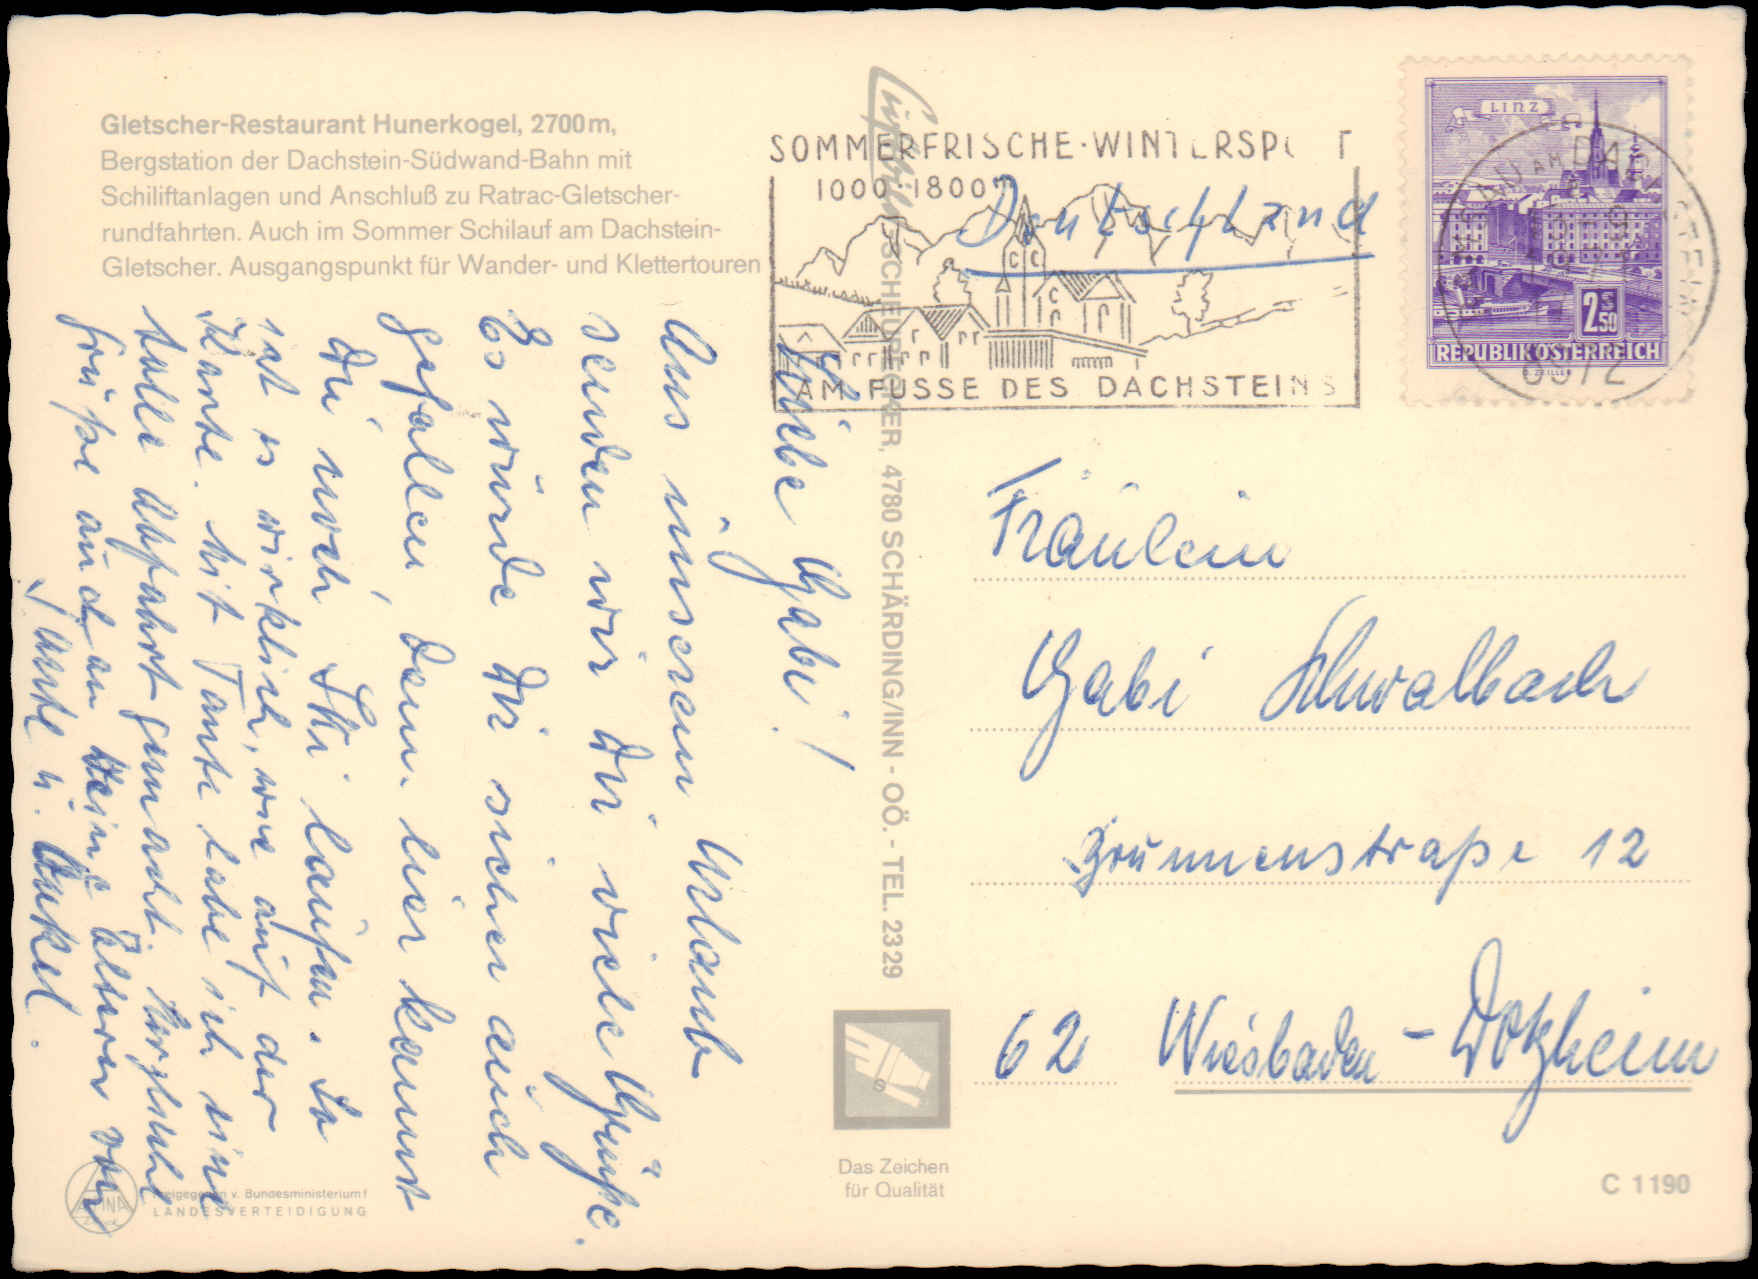 Gletscher-Restaurant Hunerkogel, 2700m,
Bergstation der Dachstein-Südwand-Bahn mit
Schiliftanlagen und Anschluß zu Ratrac-Gletscher-
rundfahrten. Auch im Sommer Schilauf am Dachstein-
Gletscher. Ausgangspunkt für Wander- und Klettertouren
Liebe Gabi!
Aus unserem Urlaub
senden wir Dir viele Grüße.
Es würde Dir sicher auch
gefallen, denn hier kannst
Du noch Ski laufen. So
ist es wirklich, wie auf der
Karte. Mit Tante habe ich eine
tolle Abfahrt gemacht. Herzliche
Grüße auch an Deine Eltern von
Tante u. Onkel.
SCHÄRDING/INN - OÖ. - TEL. 2329
4780
SOMMERFRISCHE·WINTERSP T
1000 1800m
AM FUSSE DES DACHSTEINS
Deutschland
LINZ
2.50
REPUBLIK ÖSTERREICH
Fräulein
Gabi Schwalbach
Brunnenstraße 12
62 Wiesbaden-Dotzheim
Das Zeichen
für Qualität
C 1190
ALPINA
Freigegeben v. Bundesministerium f
LANDESVERTEIDIGUNG